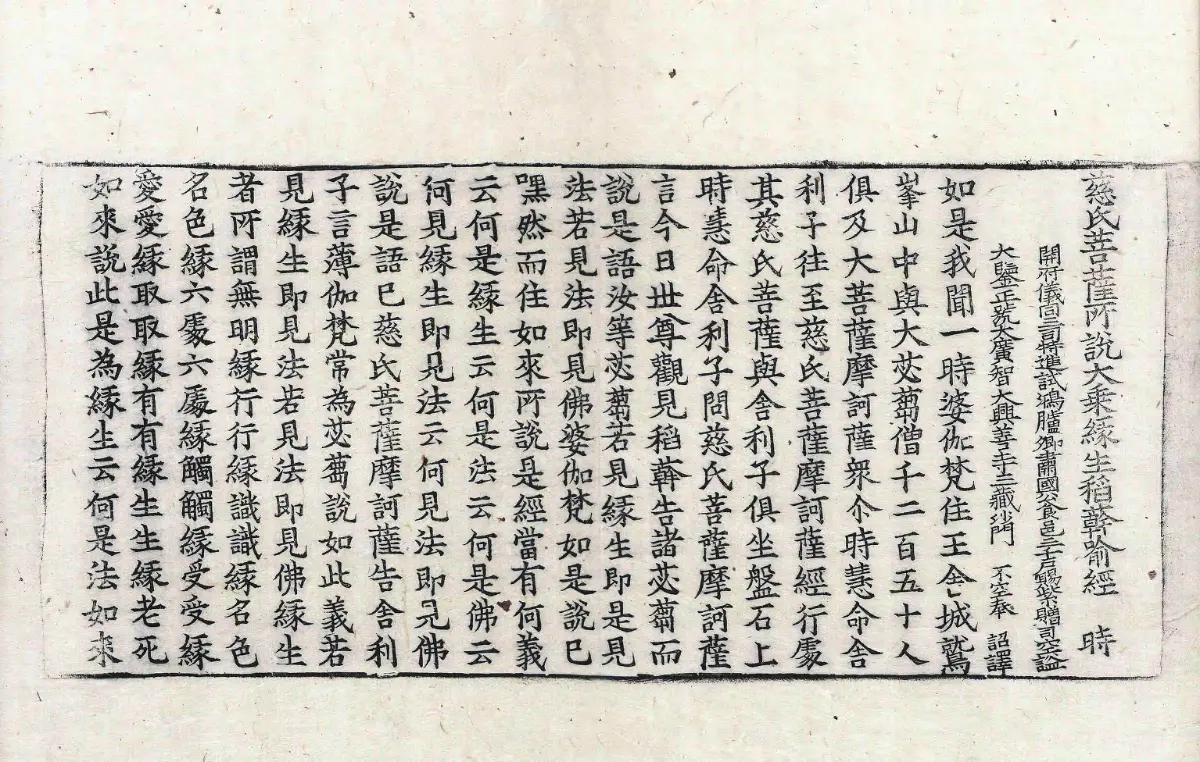 慈氏菩薩所說大乗緣生稻𦼮喻經 時
開府儀同三司特進試鴻臚卿肅國公食邑三千戶賜紫贈司空謚
大鑒正號大廣智大興善寺三藏沙門 不空奉 詔譯
如是我聞一時婆伽梵住王舍城鷲
峯山中與大苾蒭僧千二百五十人
俱及大菩薩摩訶薩衆尒時慧命舍
利子往至慈氏菩薩摩訶薩經行處
其慈氏菩薩與舍利子俱坐盤石上
時慧命舍利子問慈氏菩薩摩訶薩
言今日世尊觀見稻𦼮告諸苾蒭而
說是語汝等苾蒭若見緣生即是見
法若見法即見佛婆伽梵如是說已
嘿然而住如來所說是經當有何義
云何是緣生云何是法云何是佛云
何見緣生即見法云何見法即見佛
說是語已慈氏菩薩摩訶薩告舍利
子言薄伽梵常為苾蒭說如此義若
見緣生即見法若見法即見佛緣生
者所謂無明緣行行緣識識緣名色
名色緣六處六處緣觸觸緣受受緣
愛愛緣取取緣有有緣生生緣老死
如來說此是為緣生云何是法如來